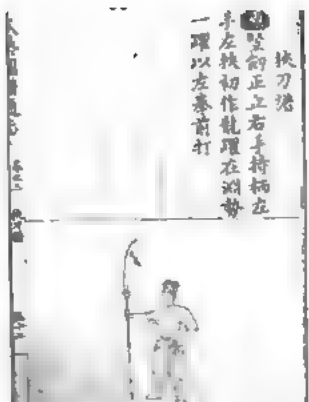 挾刀譜
豎釰正立右手持柄左
手左挾初作龍躍在淵勢
一躍以左拳前打